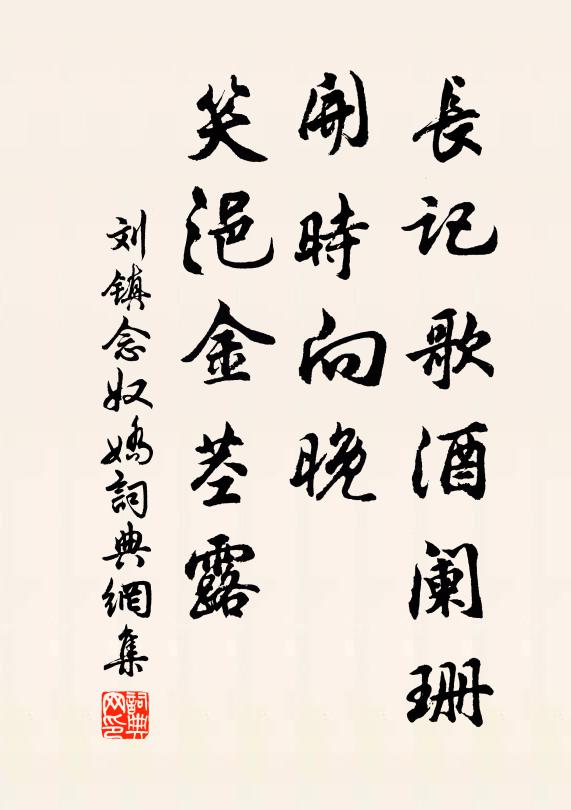 長記歌酒阑珊
開時向晚
笑浥金茎露
刘镇念奴嬌詞典網集
詞典网印